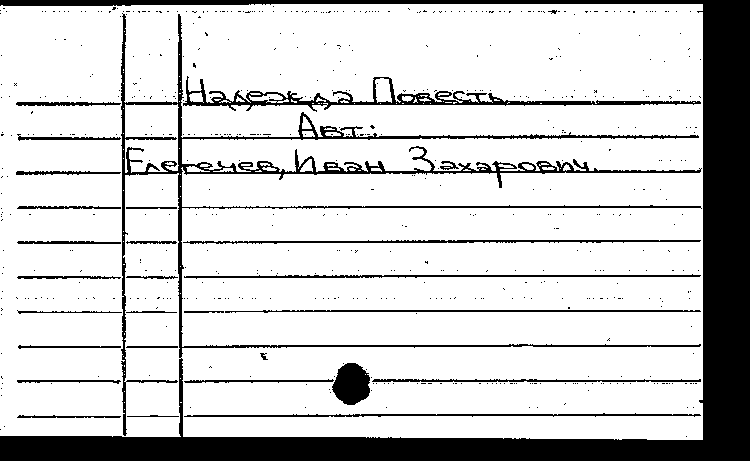 Надежда Повесть
Авт.:
Елегечев, Иван Захарович.